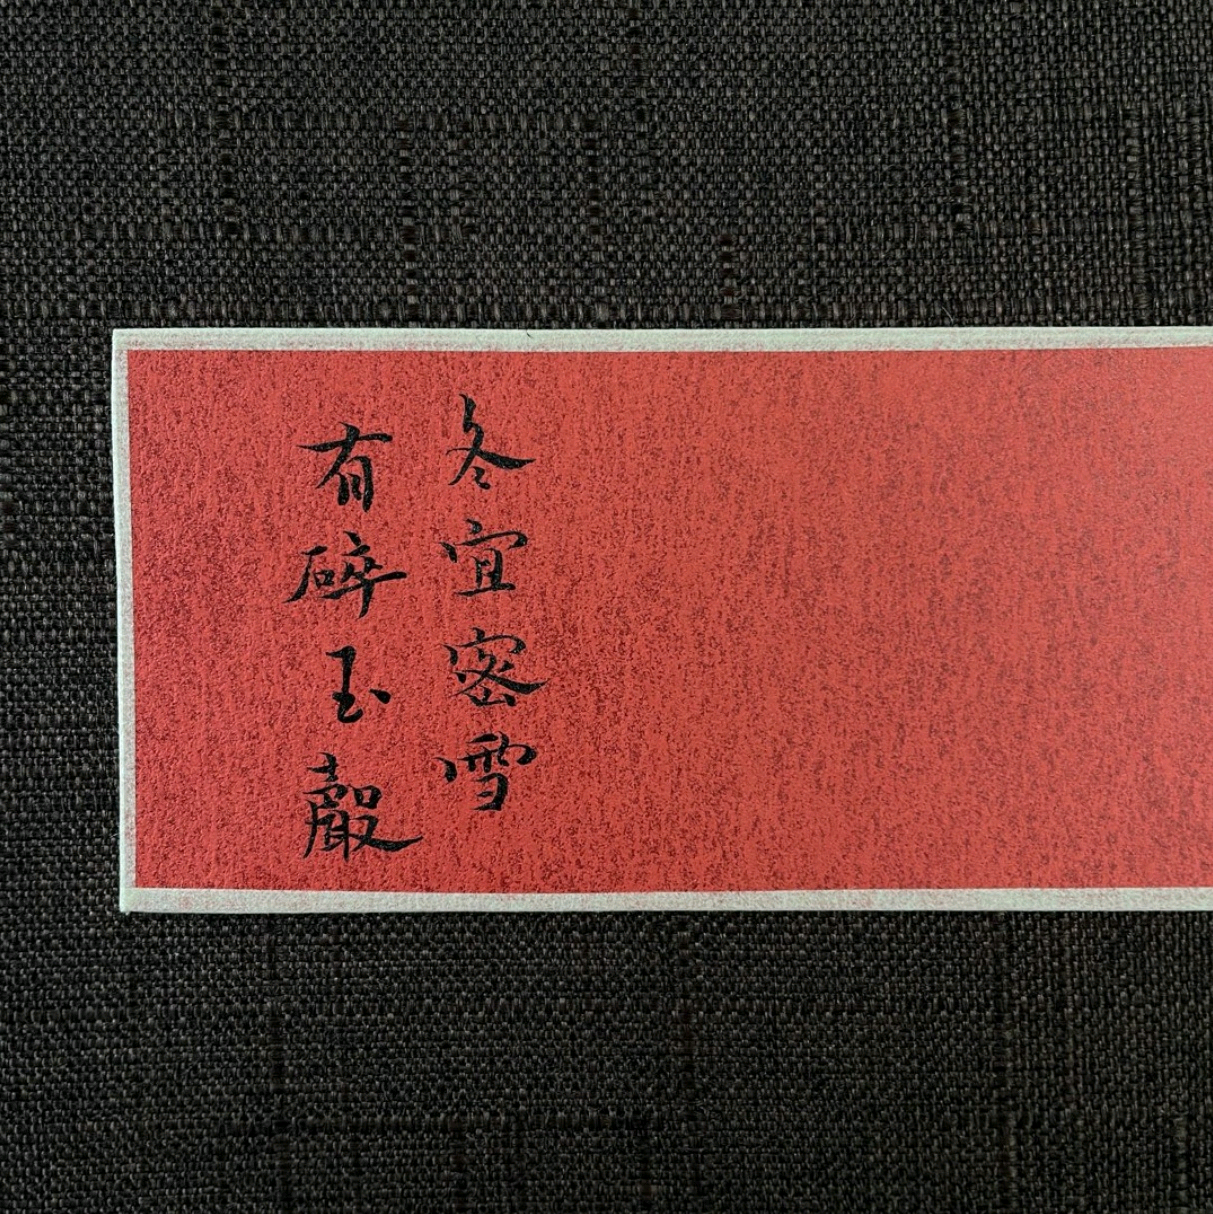 冬宜密雪
有碎玉聲